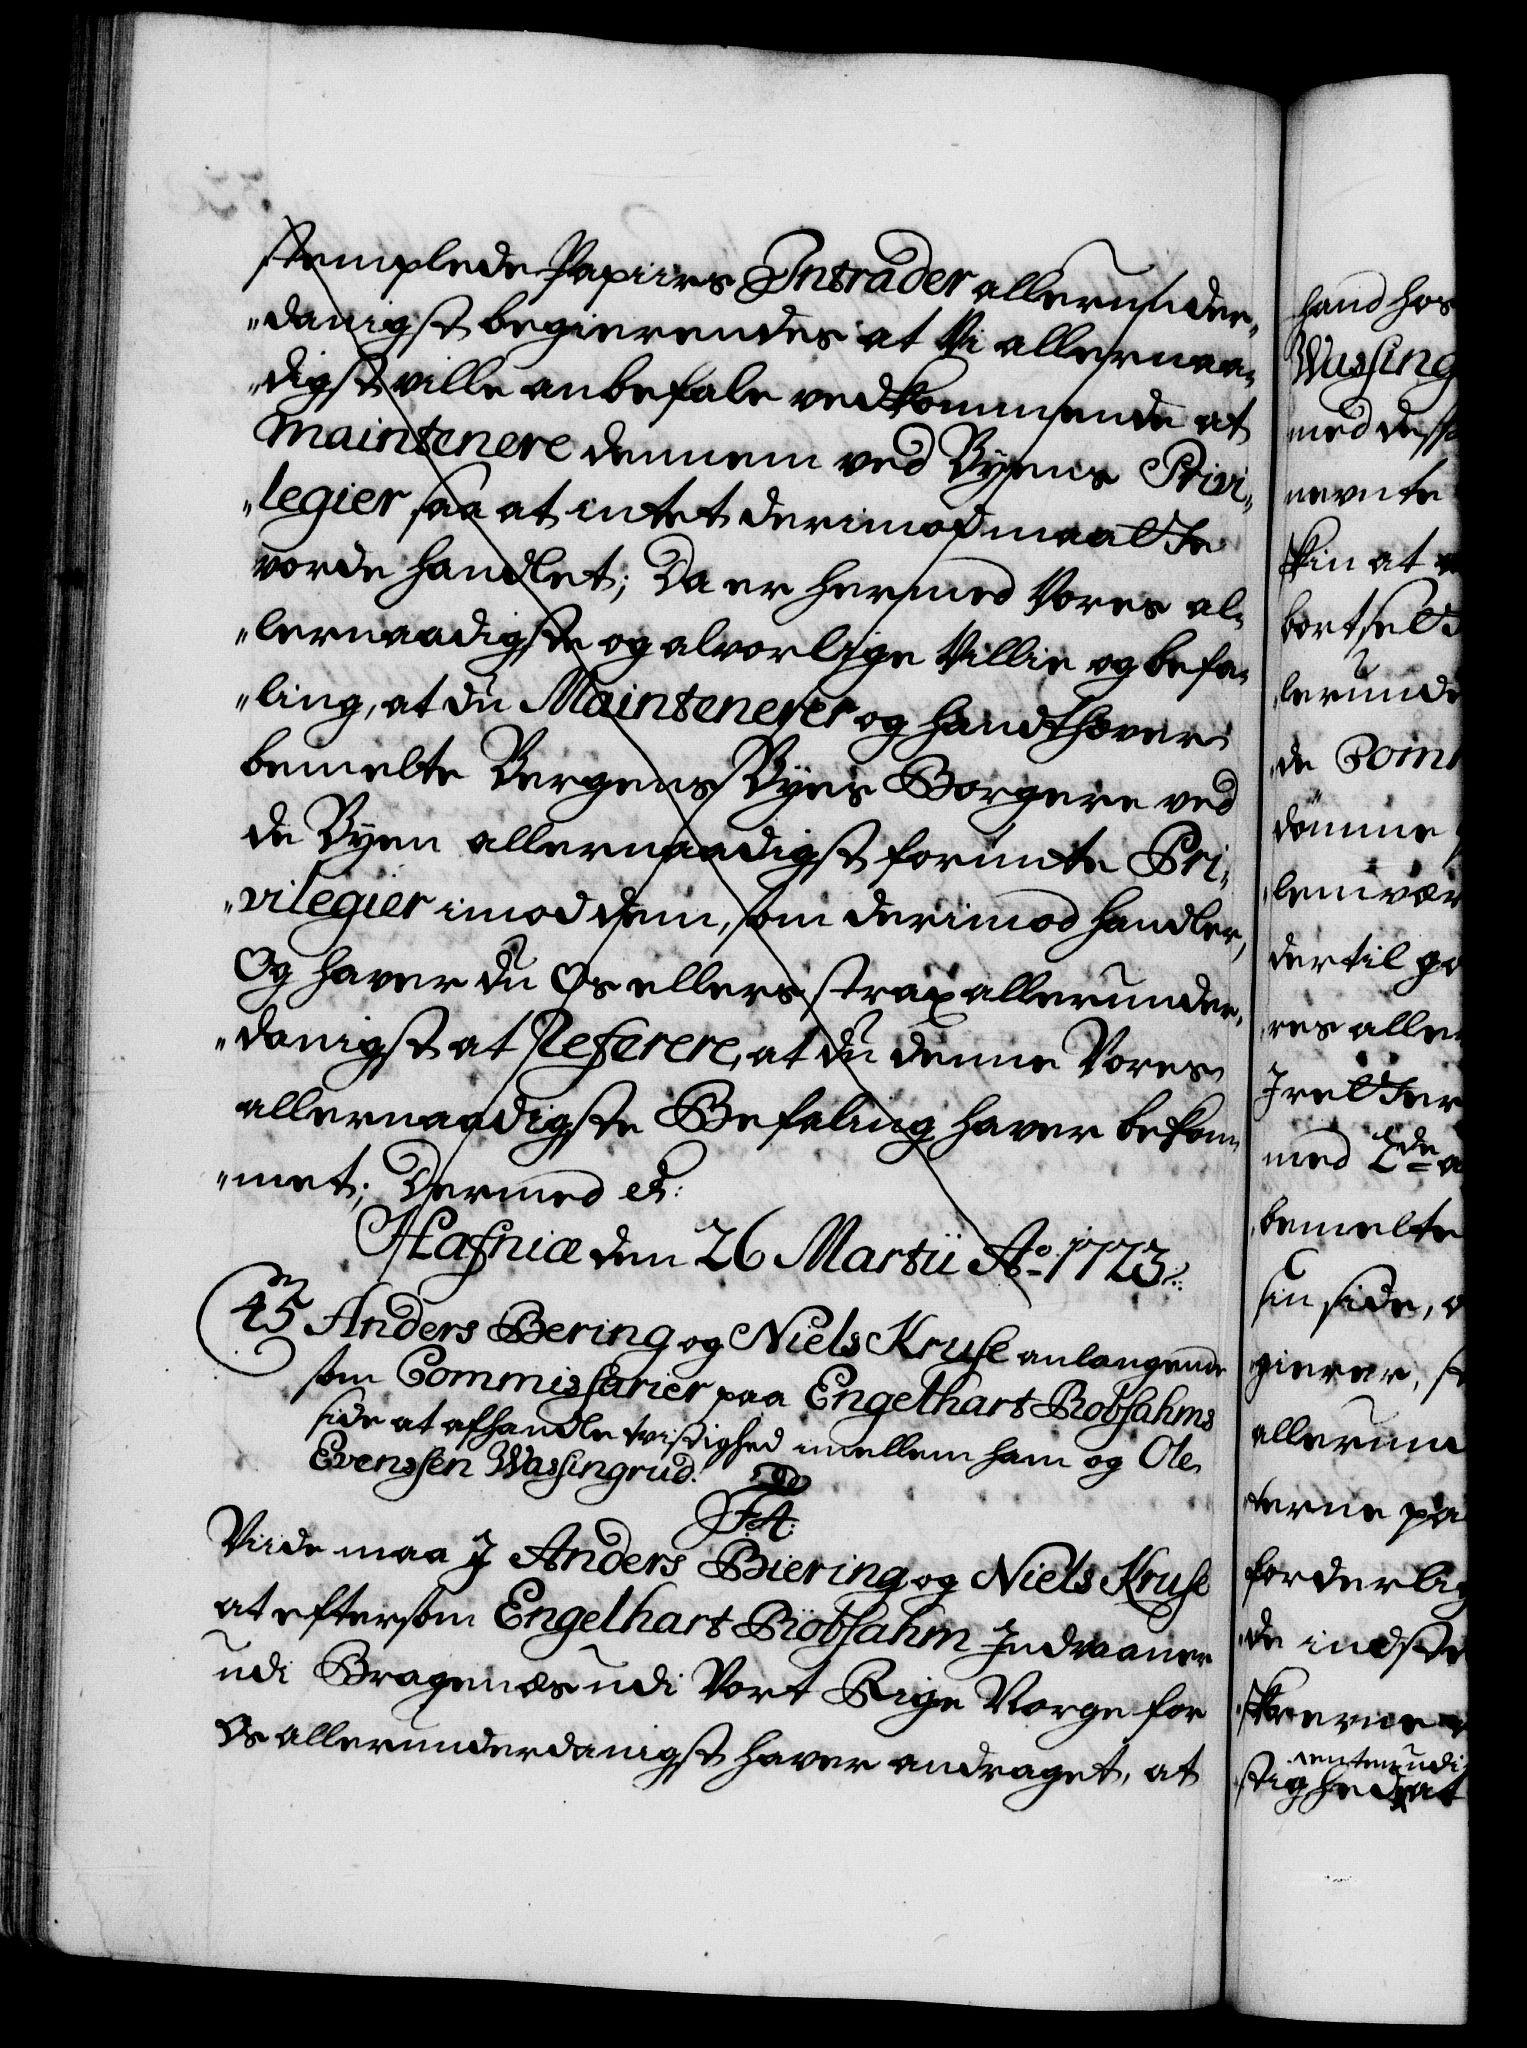 stemplede Papiirs Intrader allerunder„
„danigst begierendes at Vi allernaa„
„digst ville anbefale vedkommende at
Maintenere dennem ved Byens Privi„
„legier, saa at intet derimod maatte
vorde handlet; Da er hermed Vores al„
„lernaadigste og alvorlige Villie og befa„
„ling, at du Maintenerer og handthæver
bemelte Bergens Byes Borgere ved
de Byen allernaadigst forundte Pri„
„vilegier imod dem, som derimod handler,
Og haver du Os ellers strax allerunder„
„danigst at Referere, at du denne Vores
allernaadigste Befaling haver bekom„
„met; Dermed etc:
Hafniæ den 26 Martii Ao. 1723.
45 Anders Bering og Niels Kruse anlangende
som Commissarier paa Engelhart Robsahms
side at afhandle tvistighed imellem ham og Ole
Evenssen Wassingrud.
F:4:
Viide maa I Anders Biering og Niels Kruse
at eftersom Engelhart Robsahm Indvaaner
udi Bragenæs udi Vort Rige Norge for
Os allerunderdanigst haver andraget, at
hand hos
Wassing
med dess
nevnte
skin at
bortsett
lerunde
de Com
dømme
lem vær
dertil go
res alle
Iretter
med 2de
bemelte
sin side,
gierer,
allerun
terne paa
forderlig
de indste
skrevne
renten udi
stighed at